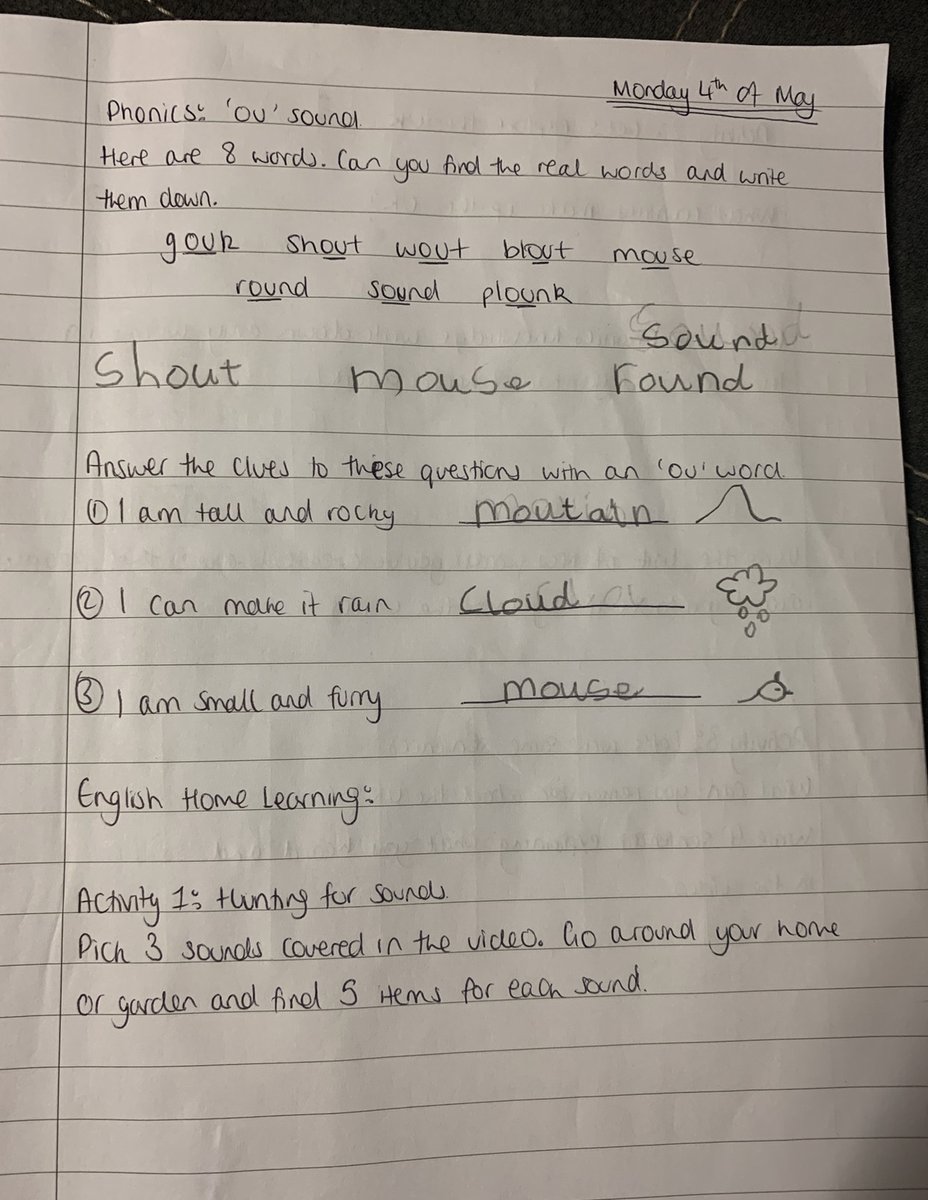 Monday 4th of May
Phonics: 'ou' sound.
Here are 8 words. Can you find the real words and write
them down.
gouk shout wout blout mouse
round sound plounk
sound
Shout mouse round
Answer the clues to these questions with an 'ou' word.
① I am tall and rocky moutain
② I can make it rain Cloud
③ I am small and furry mouse
English Home Learning:
Activity 1: Hunting for sounds.
Pick 3 sounds covered in the video. Go around your home
or garden and find 5 items for each sound.